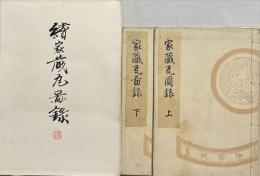 續家藏瓦圖錄
家藏瓦圖錄 下
家藏瓦圖錄 上